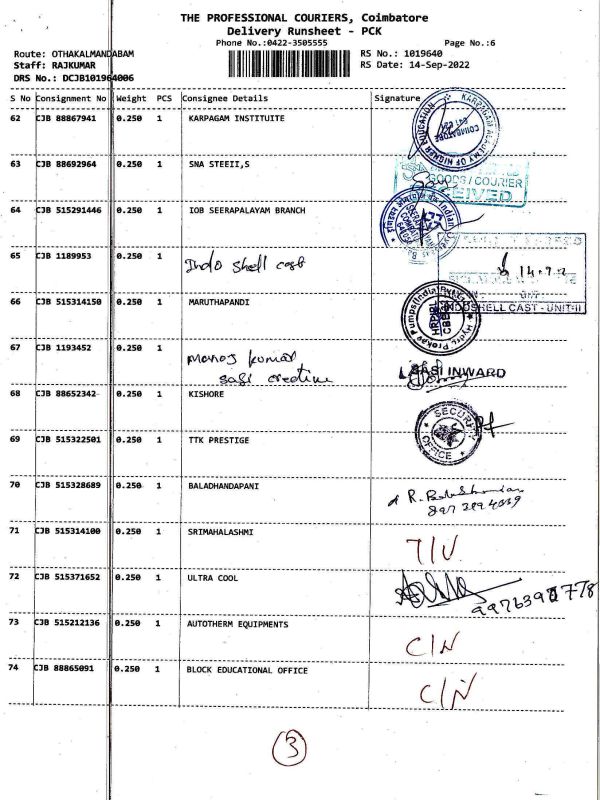 THE PROFESSIONAL COURIERS, Coimbatore
Delivery Runsheet - PCK
Phone No.:0422-3505555 Page No.:6
Route: OTHAKALMANDABAM RS No.: 1019640
Staff: RAJKUMAR RS Date: 14-Sep-2022
DRS No.: DCJB101964006
S No Consignment No Weight PCS Consignee Details Signature
62 CJB 88867941 0.250 1 KARPAGAM INSTITUITE
KARPAGAM ACADEMY OF HIGHER EDUCATION
COIMBATORE
641 021
63 CJB 88692964 0.250 1 SNA STEEII,S
GOODS / COURIER
RECEIVED
64 CJB 515291446 0.250 1 IOB SEERAPALAYAM BRANCH
65 CJB 1189953 0.250 1 Indo Shell cast
INDOSHELL CAST - UNIT-II
66 CJB 515314150 0.250 1 MARUTHAPANDI
Hydro Prokav Pumps (India) Pvt Ltd
HRPIPL
67 CJB 1193452 0.250 1 Manoj kumar
sasi creative
SASI INWARD
68 CJB 88652342 0.250 1 KISHORE
SECURITY
OFFICE
69 CJB 515322501 0.250 1 TTK PRESTIGE
70 CJB 515328689 0.250 1 BALADHANDAPANI
71 CJB 515314100 0.250 1 SRIMAHALASHMI
72 CJB 515371652 0.250 1 ULTRA COOL
73 CJB 515212136 0.250 1 AUTOTHERM EQUIPMENTS C/N
74 CJB 88865091 0.250 1 BLOCK EDUCATIONAL OFFICE C/N
3